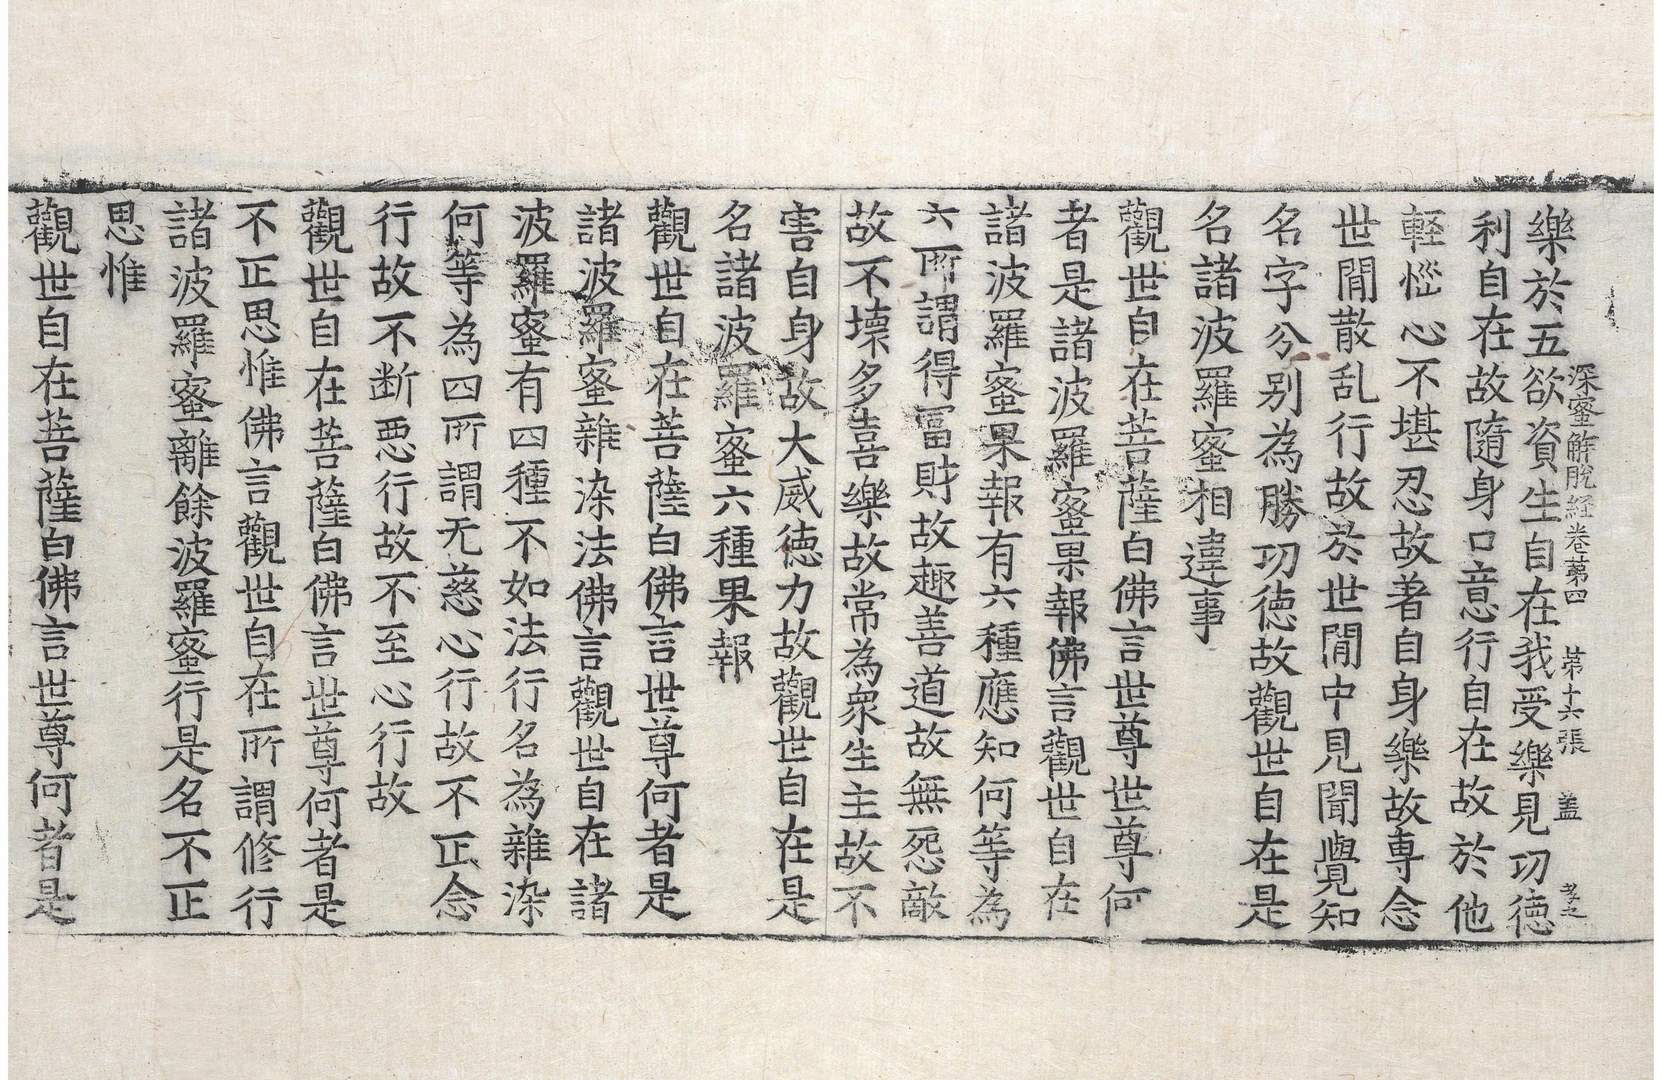 深蜜解脫経卷苐四 苐十六張 盖
樂於五欲資生自在我受樂見功徳
利自在故隨身口意行自在故於他
輕𢙉心不堪忍故著自身樂故専念
世閒散乱行故於世閒中見聞覺知
名字分别為勝功徳故觀世自在是
名諸波羅蜜相違事
觀世自在菩薩白佛言世尊世尊何
者是諸波羅蜜果報佛言觀世自在
諸波羅蜜果報有六種應知何等為
六所謂得冨財故趣善道故無怨敵
故不壞多喜樂故常為衆生主故不
害自身故大威徳力故觀世自在是
名諸波羅蜜六種果報
觀世自在菩薩白佛言世尊何者是
諸波羅蜜雜染法佛言觀世自在諸
波羅蜜有四種不如法行名為雜染
何等為四所謂无慈心行故不正念
行故不断惡行故不至心行故
觀世自在菩薩白佛言世尊何者是
不正思惟佛言觀世自在所謂修行
諸波羅蜜離餘波羅蜜行是名不正
思惟
觀世自在菩薩白佛言世尊何者是